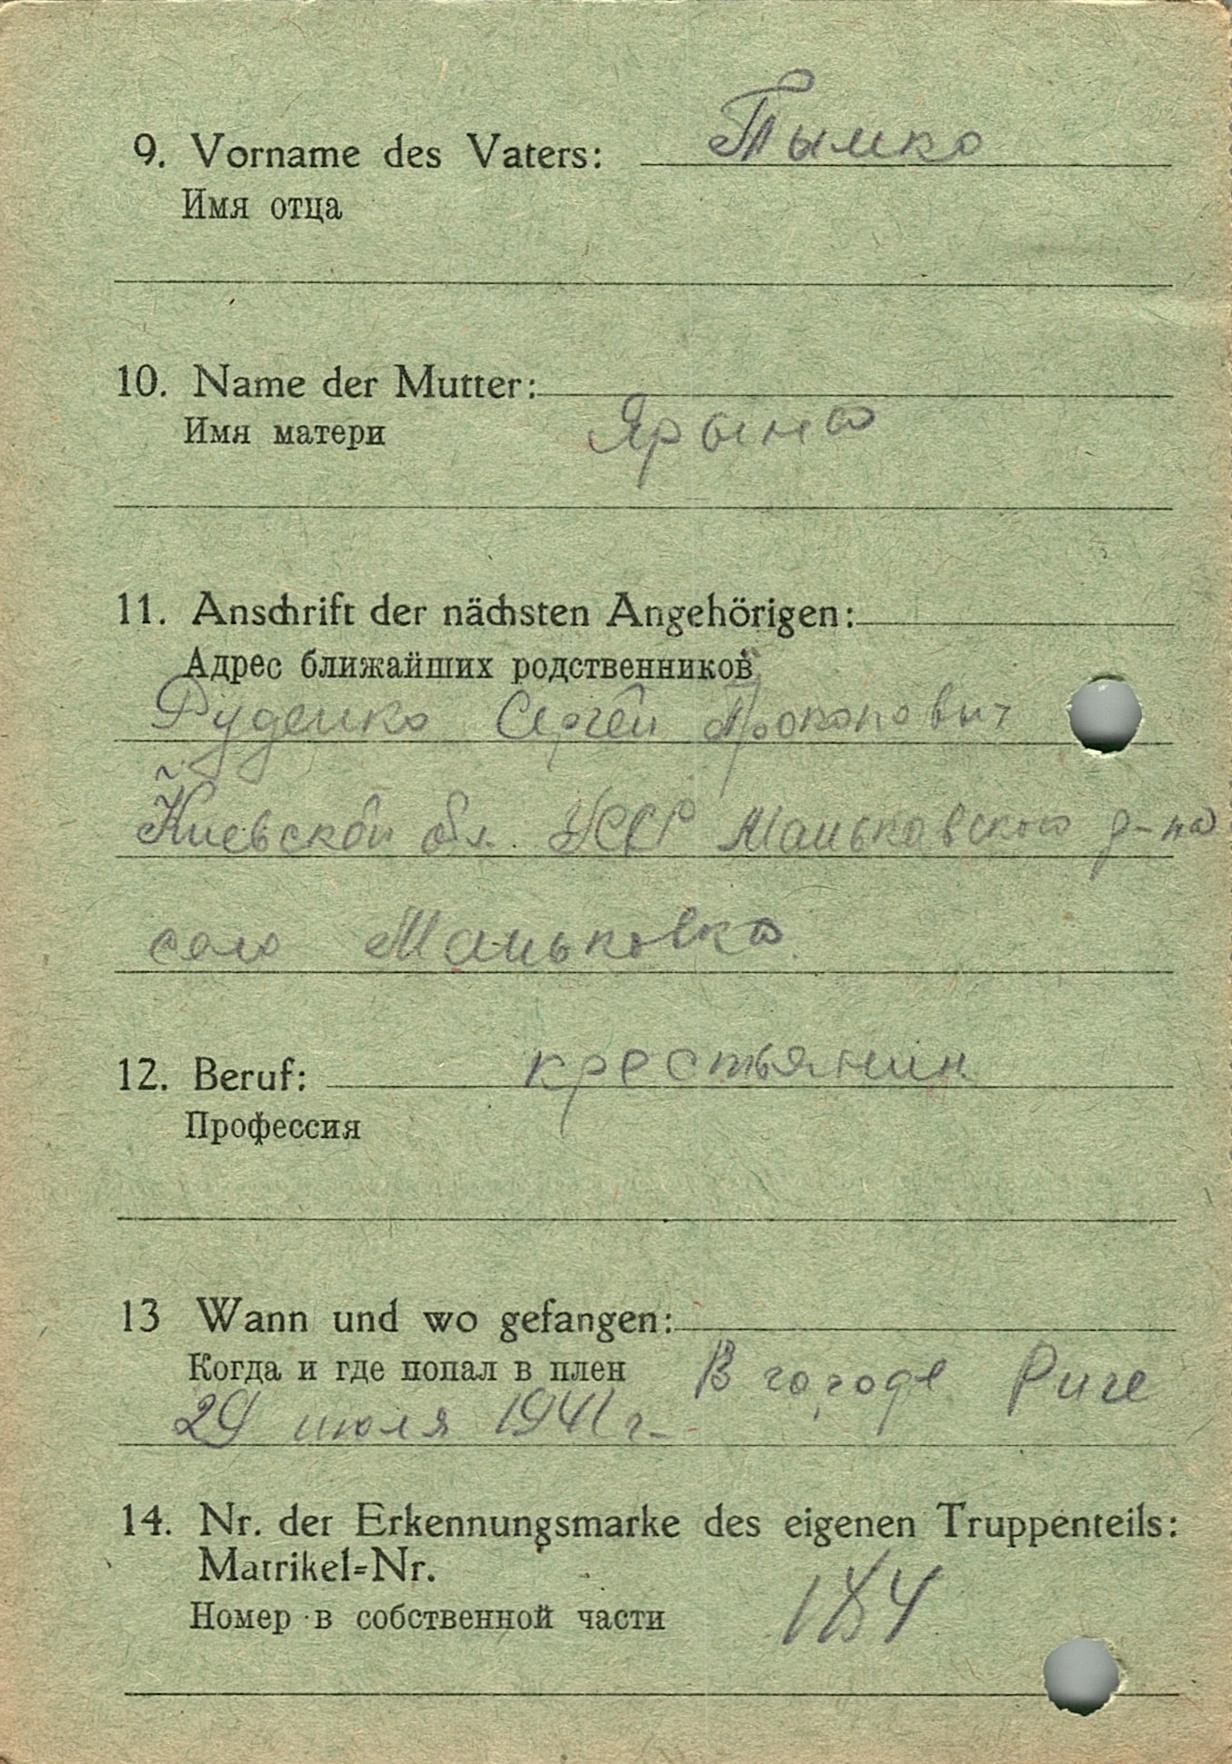 9. Vorname des Vaters: Тымко
Имя отца
10. Name der Mutter:
Имя матери Ярына
11. Anschrift der nächsten Angehörigen:
Адрес ближайших родственников
Руденко Сергей Прокопович
Киевской обл. УССР Маньковского р-на
село Маньковка.
12. Beruf: крестьянин
Профессия
13 Wann und wo gefangen:
Когда и где попал в плен В городе Риге
29 июля 1941 г.
14. Nr. der Erkennungsmarke des eigenen Truppenteils:
Matrikel=Nr.
Номер в собственной части 184